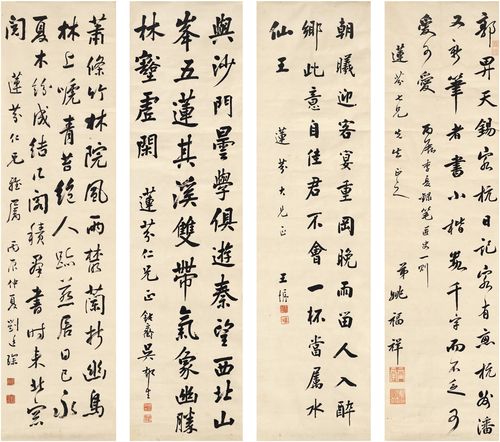 郭畀天錫客杭日記客有惠杭州潘
又新筆者書小楷幾千字而不乏可
愛可愛 丙辰季夏錄筆匠史一則
蓮芬七兄先生正之
弟姚福祥
朝曦迎客宴重岡晚雨留人入醉
鄉此意自佳君不會一杯當屬水
仙王 蓮芬大兄正 王
與沙門曇學俱遊秦望西北山
峯五蓮其溪雙帶氣象幽勝
林壑虛閑 蓮芬仁兄正 鈍齋吳郁生
蕭條竹林院風雨叢蘭折幽鳥
林上嗁青苔絕人跡燕居日已永
夏木紛成結几閣積羣書時來北窗
閱 蓮芬仁兄雅屬 丙辰仲夏劉廷琛